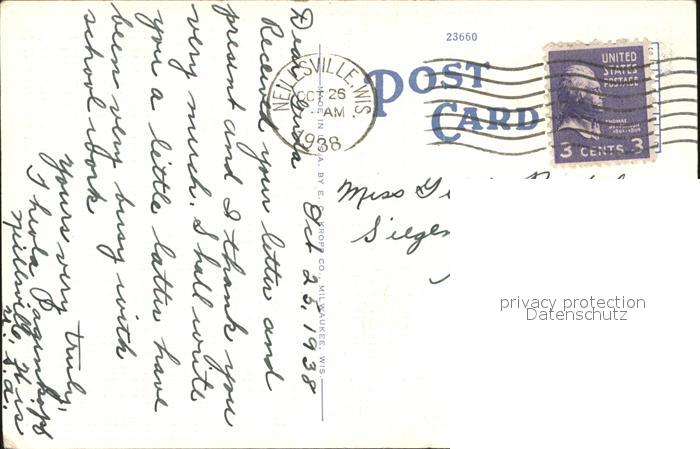 Dear Oct 25, 1938
Received your letter and
present and I thank you
very much. I shall write
you a little latter have
been very busy with
school work
Yours very truly,
Neillsville, Wis
U. S. A.
23660
POST CARD
NEILLSVILLE, WIS.
OCT 26
AM
1938
UNITED
STATES
POSTAGE
THOMAS
JEFFERSON
3 CENTS 3
MADE IN U.S.A. BY E. C. KROPP CO., MILWAUKEE, WIS.
Miss
privacy protection
Datenschutz